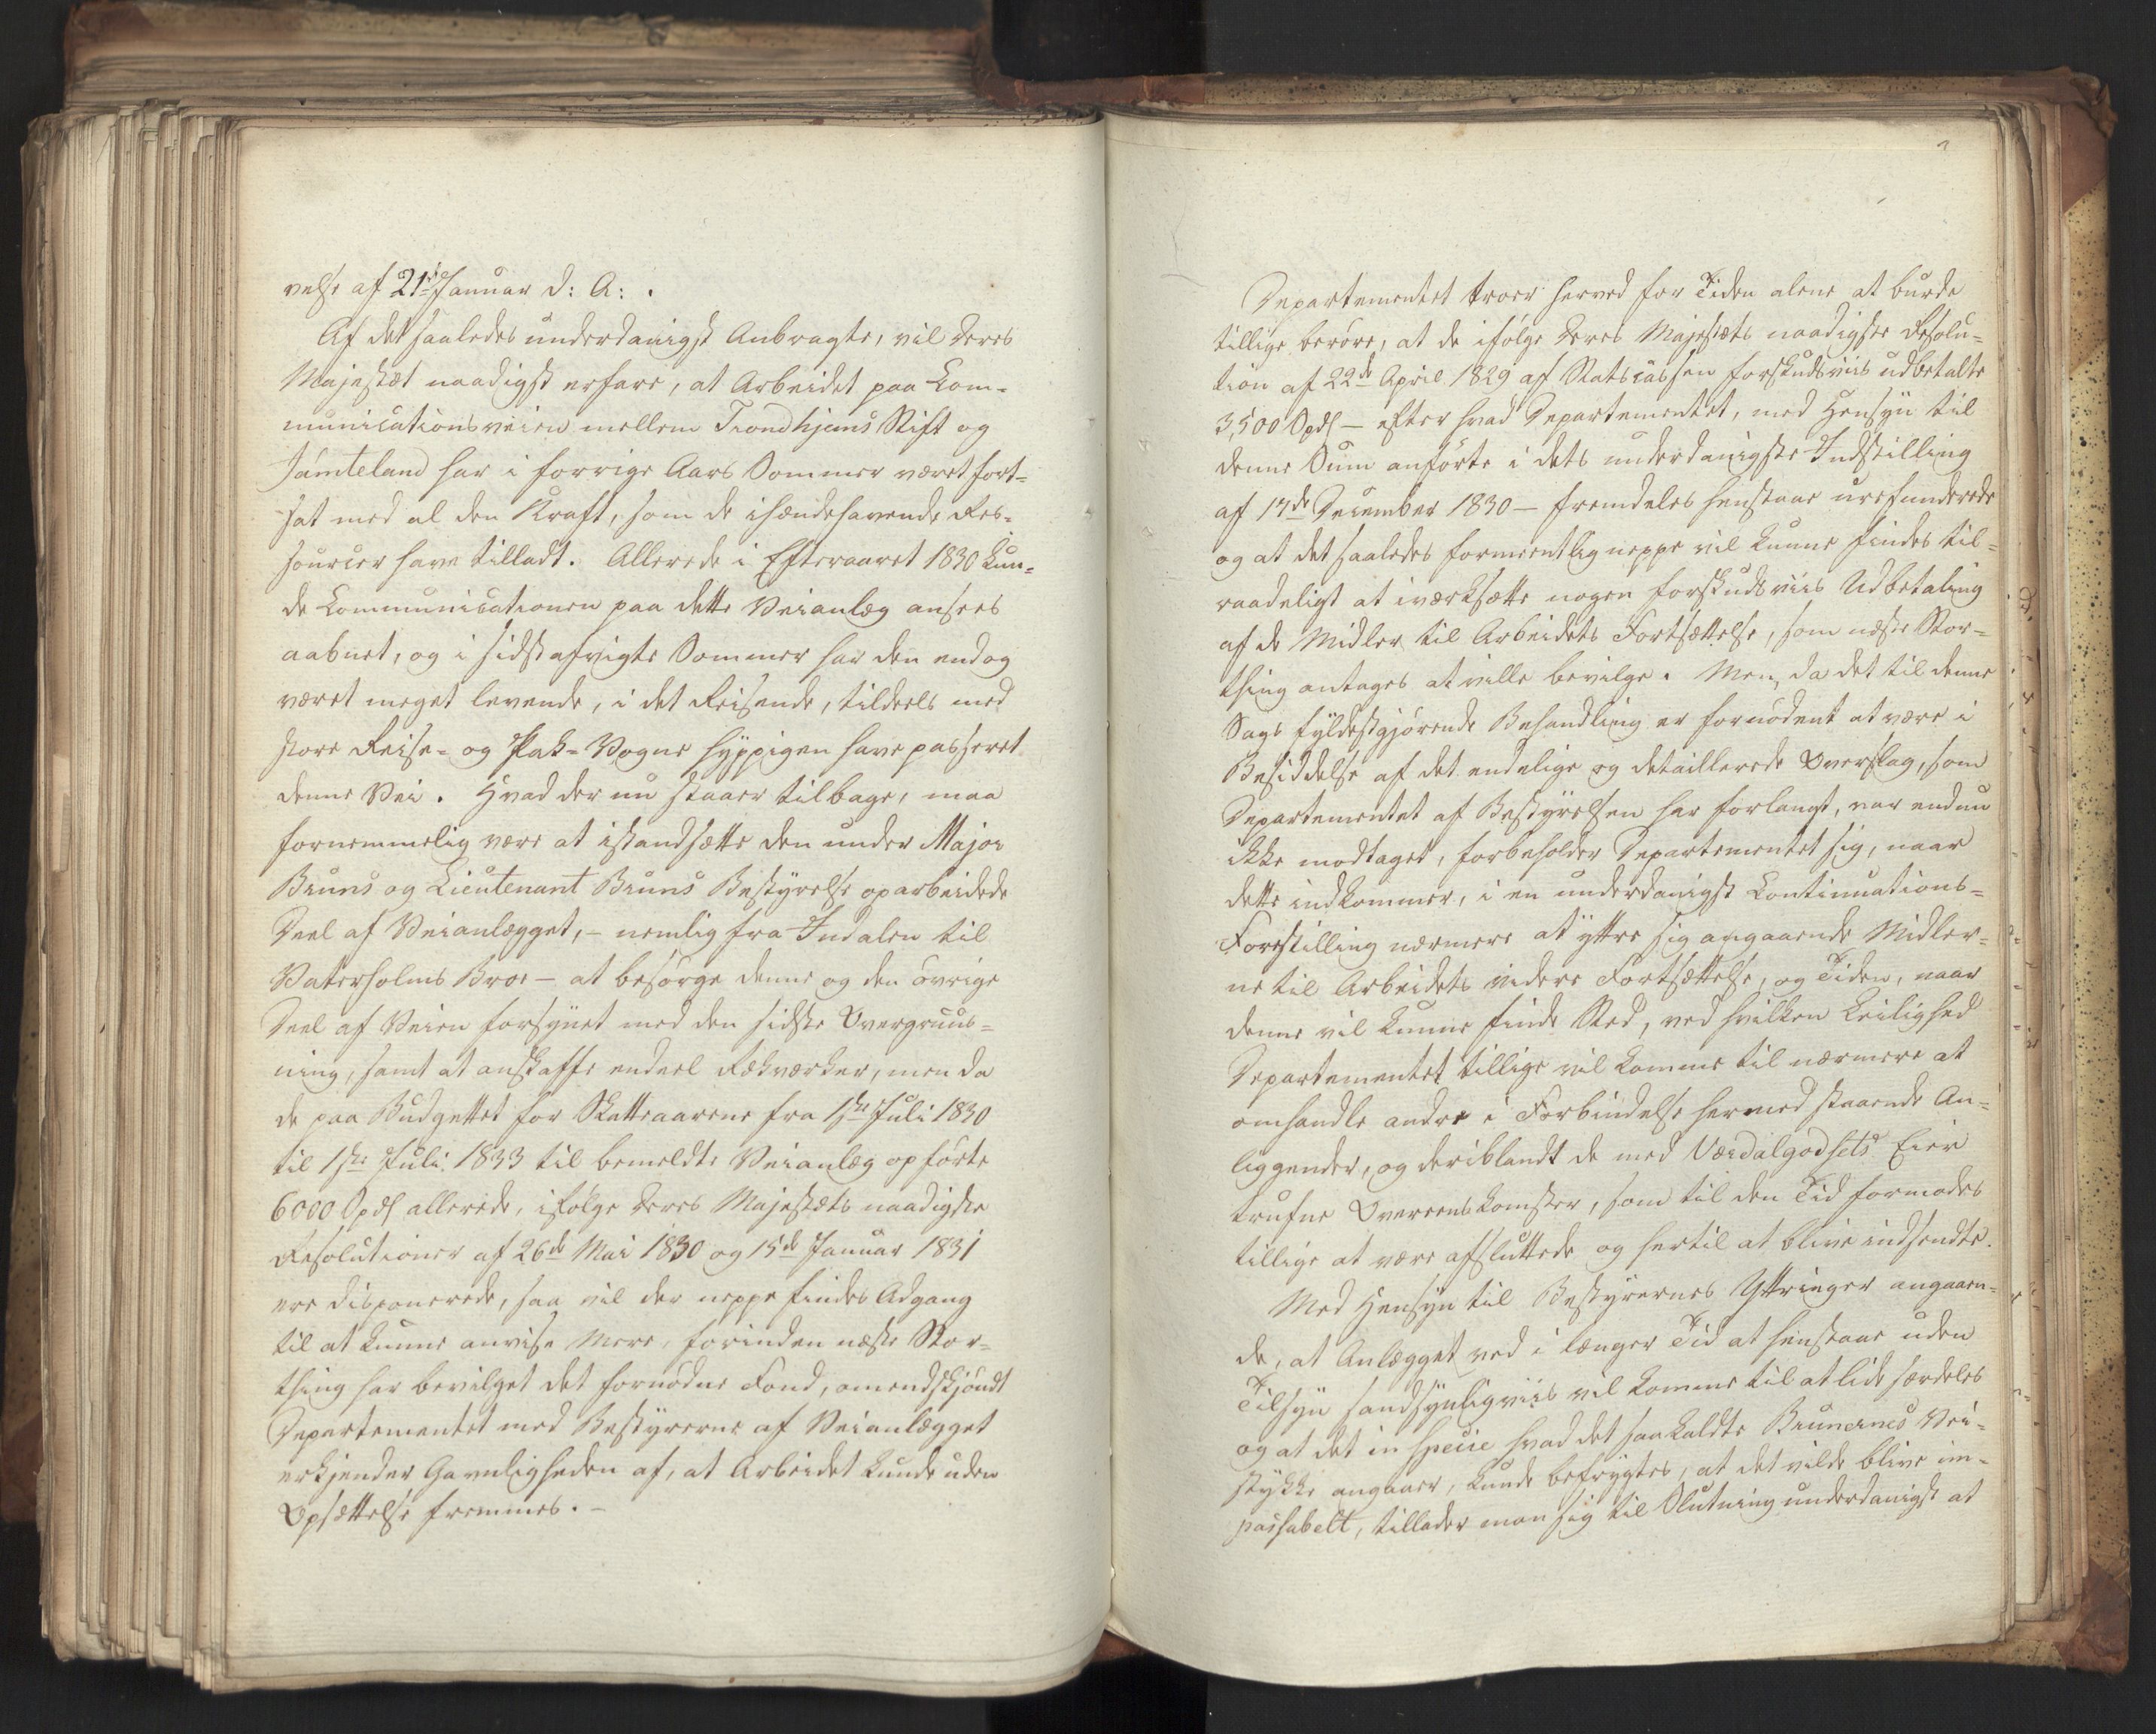 velse af 21de Januar d: A: .
Af det saaledes underdanigst Anbragte, vil Deres
Majestæt naadigst erfare, at Arbeidet paa Com-
municationsveien mellem Trondhjems Stift og
Jämteland har i forrige Aars Sommer været fort-
sat med al den Kraft, som de ihændehavende Res-
sourcer have tilladt. Allerede i Efteraaret 1830 kun-
de Communicationen paa dette Veianlæg ansees
aabnet, og i sidstafvigte Sommer har den endog
været meget levende, i det Reisende, tildeels med
store Reise- og Pak-Vogne hyppigen have passeret
denne Vei. Hvad der nu staaer tilbage, maa
fornemmelig være at istandsætte den under Major
Bruns og Lieutenant Bruns Bestyrelse oparbeidede
Deel af Veianlægget, - nemlig fra Indalen til
Vaterholms Broe - at besørge denne og den øvrige
Deel af Veien forsynet med den sidste Overgruus-
ning, samt at anskaffe endeel Rækværker, men da
de paa Budgettet for Skatteaarene fra 1ste Juli 1830
til 1ste Juli 1833 til bemeldte Veianlæg opførte
6000 Spdl allerede, ifølge Deres Majestæts naadigste
Resolutioner af 26de Mai 1830 og 15de Januar 1831
ere disponerede, saa vil der neppe findes Adgang
til at kunne anvise Mere, forinden næste Stor-
thing har bevilget det fornødne Fond, omendskjøndt
Departementet med Bestyrerne af Veianlægget
erkjender Gavnligheden af, at Arbeidet kunde uden
Opsættelse fremmes. -
Departementet troer herved for Tiden alene at burde
tillige berøre, at de ifølge Deres Majestæts naadigste Resolu-
tion af 22de April 1829 af Statscassen forskudsviis udbetalte
3,500 Spdl - efter hvad Departementet, med Hensyn til
denne Sum anførte i dets underdanigste Indstilling
af 17de December 1830 - fremdeles henstaae urefunderede
og at det saaledes formeentlig neppe vil kunne findes til-
raadeligt at iværksætte nogen forskudsviis Udbetaling
af de Midler til Arbeidets Fortsættelse, som næste Stor-
thing antages at ville bevilge. Men, da det til denne
Sags fyldestgjørende Behandling er fornødent at være i
Besiddelse af det endelige og detaillerede Overslag, som
Departementet af Bestyrelsen har forlangt, var endnu
ikke modtaget, forbeholder Departementet sig, naar
dette indkommer, i en underdanigst Continuations-
Forestilling nærmere at yttre sig angaaende Midler-
ne til Arbeidets videre Fortsættelse, og Tiden, naar
denne vil kunne finde Sted, ved hvilken Leilighed
Departementet tillige vil komme til nærmere at
omhandle andre i Forbindelse hermed staaende An-
liggender, og deriblandt de med Værdalgodsets Eier
trufne Overeenskomster, som til den Tid formodes
tillige at være afsluttede og hertil at blive indsendte.
Med Hensyn til Bestyrernes Yttringer angaaen-
de, at Anlægget ved i længer Tid at henstaae uden
Tilsyn sandsynligviis vil komme til at lide særdeles
og at det in specie hvad det saakaldte Brunernes Vei-
stykke angaaer, kunde befrygtes, at det vilde blive im-
passabelt, tillader man sig til Slutning underdanigst at